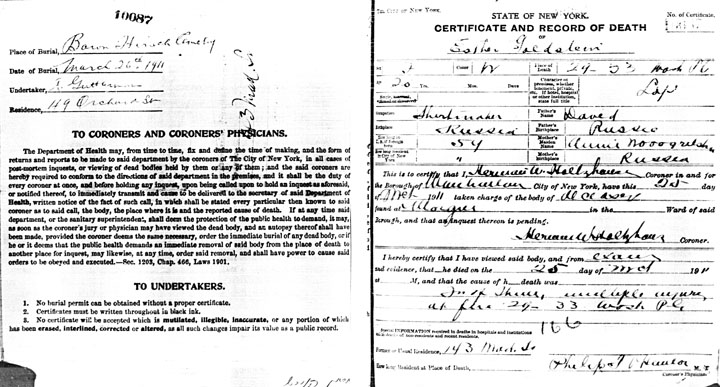 10087
Place of Burial, Baron Hirsch Cmtry
Date of Burial, March 26th 1911
Undertaker,
Residence, 119 Orchard St
TO CORONERS AND CORONERS' PHYSICIANS.
The Department of Health may, from time to time, fix and define the time of making, and the form of
returns and reports to be made to said department by the coroners of The City of New York, in all cases of
post-mortem inquests, or viewing of dead bodies held by them or any of them; and the said coroners are
hereby required to conform to the directions of said department in the premises, and it shall be the duty of
every coroner at once, and before holding any inquest, upon being called upon to hold an inquest as aforesaid,
or notified thereof, to immediately transmit and cause to be delivered to the secretary of said Department of
Health, written notice of the fact of such call, in which shall be stated every particular then known to said
coroner as to said call, the body, the place where is and the reported cause of death. If at any time said
department, or the sanitary superintendent, shall deem the protection of the public health to demand, it may,
as soon as the coroner's jury or physician may have viewed the dead body, and an autopsy thereof shall have
been made, provided the coroner deems the same necessary, order the immediate burial of any dead body, or if
he or it deems that the public health demands an immediate removal of said body from the place of death to
another place for inquest, may likewise, at any time, order said removal, and shall have power to cause said
orders to be obeyed and executed.—Sec. 1203, Chap. 466, Laws 1901.
TO UNDERTAKERS.
1. No burial permit can be obtained without a proper certificate.
2. Certificates must be written throughout in black ink.
3. No certificate will be accepted which is mutilated, illegible, inaccurate, or any portion of which
has been erased, interlined, corrected or altered, as all such changes impair its value as a public record.
THE CITY OF NEW YORK.
STATE OF NEW YORK.
No. of Certificate.
CERTIFICATE AND RECORD OF DEATH
OF
Esther Goldstein
Color W
Place of Death 29-33 Wash Pl
20 Mos. Days
Character of premises, whether tenement, private, etc. If hotel, hospital or other institution, state full title
Father's Name David
Birthplace Russia
Father's Birthplace Russia
Mother's Maiden Name Annie
Mother's Birthplace Russia
This is to certify that I, Herman W. Holtzhauser Coroner in and for
the Borough of Manhattan City of New York, have this 25 day
of Mch 1911 taken charge of the body of deceased
found at Morgue in the Ward of said
Borough, and that an inquest thereon is pending.
Herman W. Holtzhauser Coroner.
I hereby certify that I have viewed said body, and from exam
and evidence, that he died on the 25 day of Mch 1911
at M, and that the cause of h death was
at fire 29-33 Wash Pl
166
SPECIAL INFORMATION required in deaths in hospitals and institutions
Former or Usual Residence, 143 Mad. St
How long Resident at Place of Death,
M. D.
Coroner's Physician.